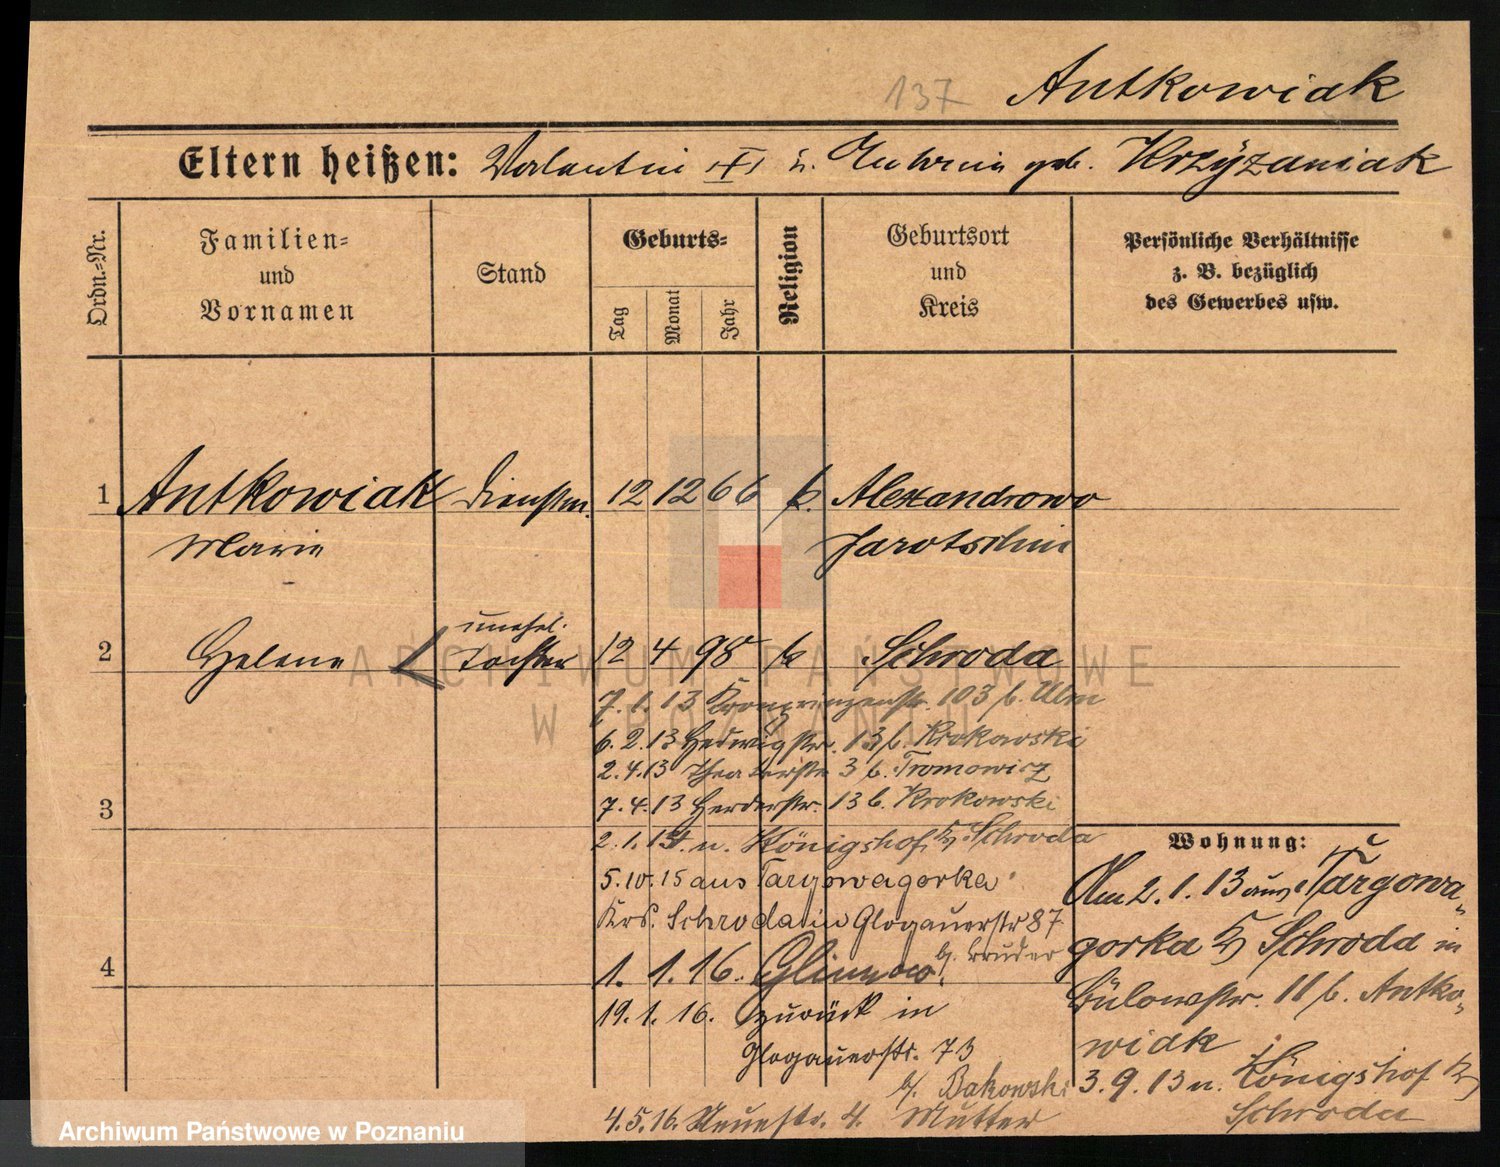 137 Antkowiak
Eltern heißen: Valentin u. geb. Krzyzaniak
Ordn.=Nr.
Familien=
und
Vornamen
Stand
Geburts=
Tag
Monat
Jahr
Religion
Geburtsort
und
Kreis
Persönliche Verhältnisse
z. B. bezüglich
des Gewerbes usw.
1 Antkowiak Dienstm. 12 12 66 k. Alexandrowo
Marie Jarotschin
unehel.
2 Helene Tochter 12 4 98 k Schroda
7.1.13 Kronprinzenstr. 103 b. Ulm
6.2.13 Hedwigstr. 13 b. Krokowski
2.4.13 Theaterstr 3 b. Tromowicz
3
7.4.13 Herderstr. 13 b. Krokowski
2.1.14 n. Königshof Schroda
5.10.15 aus Targowagorka
Krs. Schroda in Glogauerstr 87
b. Bruder
4
1. 1. 16. Glinnow
19.1.16. zurück in
Glogauerstr. 73
b. Bakowski
4.5.16. Neuestr. 4. Mutter
Wohnung:
Am 2.1.13 aus Targowa-
gorka Schroda in
Bülowstr. 11 b. Antko-
wiak
3.9.13 n. Königshof
Schroda
ARCHIWUM PAŃSTWOWE
W POZNANIU
Archiwum Państwowe w Poznaniu